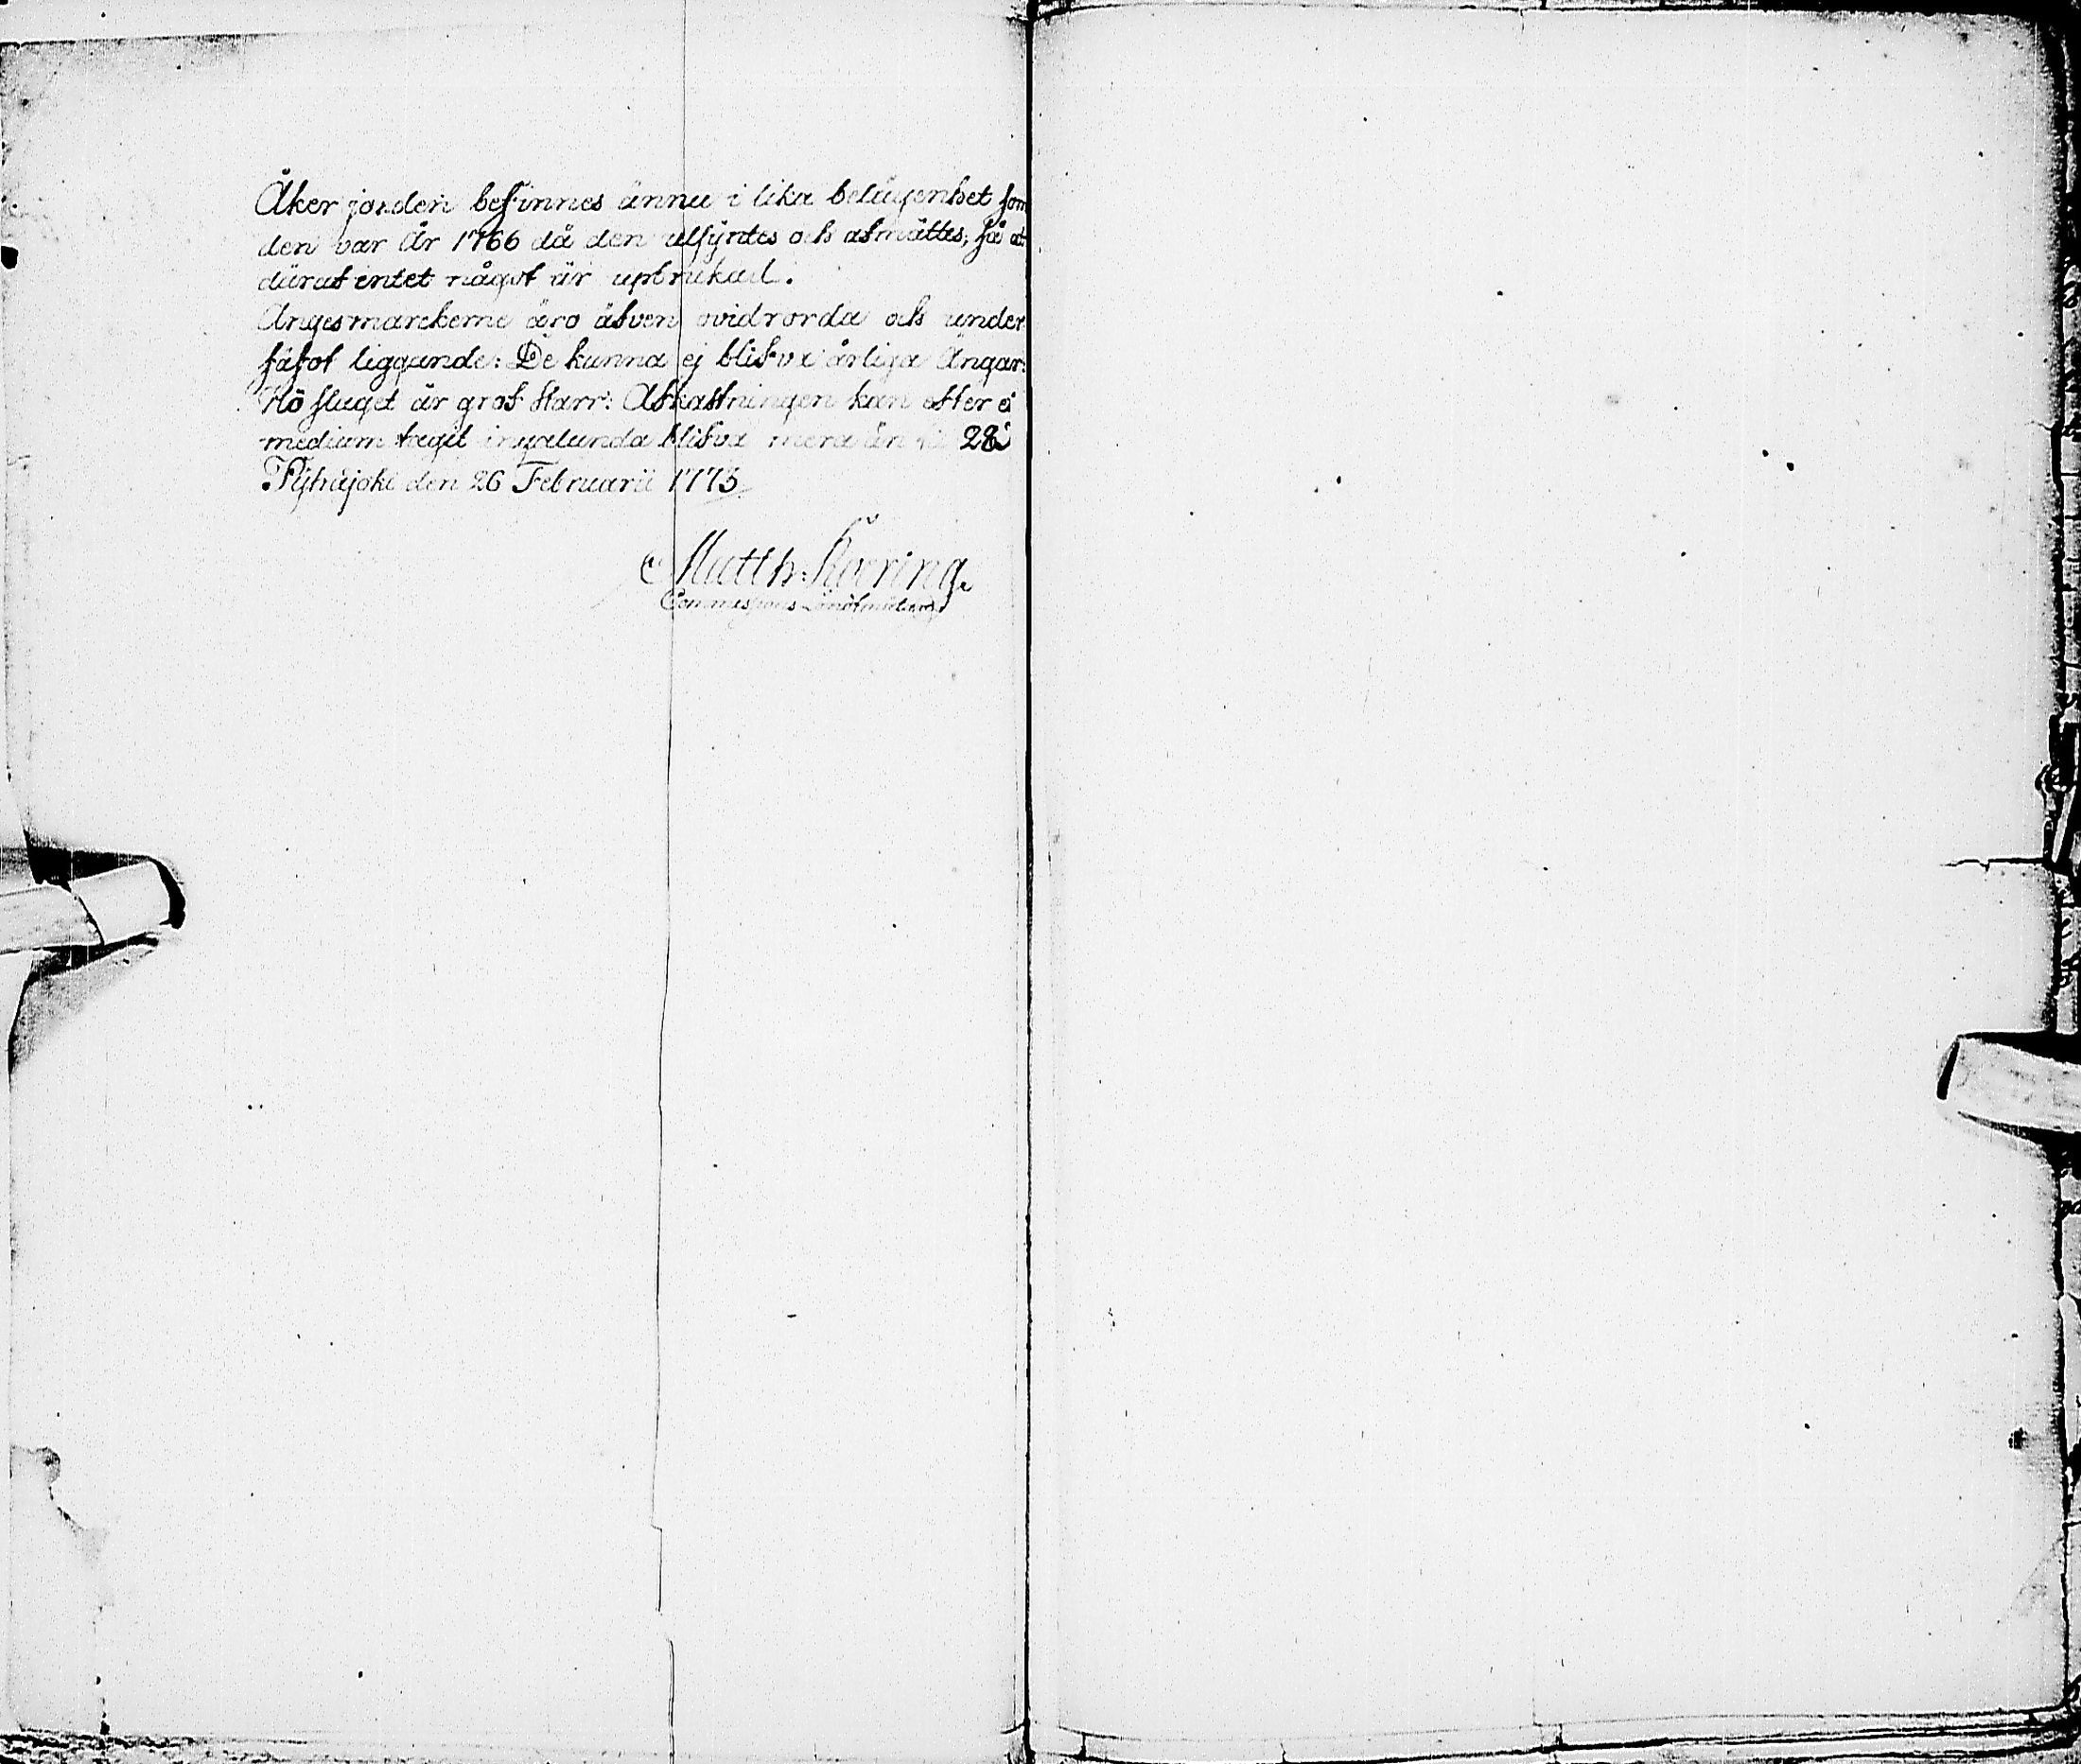 Åker jorden befinnes ännu i lika belägenhet som
den var År 1766 då den utsyntes och afmättes, så at
däraf intet något är upbrukad.
Ängesmarckerne äro äfven ovidrorda och under
fäfot liggande: De kunna ej blifva årliga Ängar:
Hö slaget är grof starr: Afkastningen kan efter et
medium tagit ingalunda blifva mera än 28
Pyhäjoki den 26 Februarii 1773.
Matth: Koering
Commissions Landtmätare